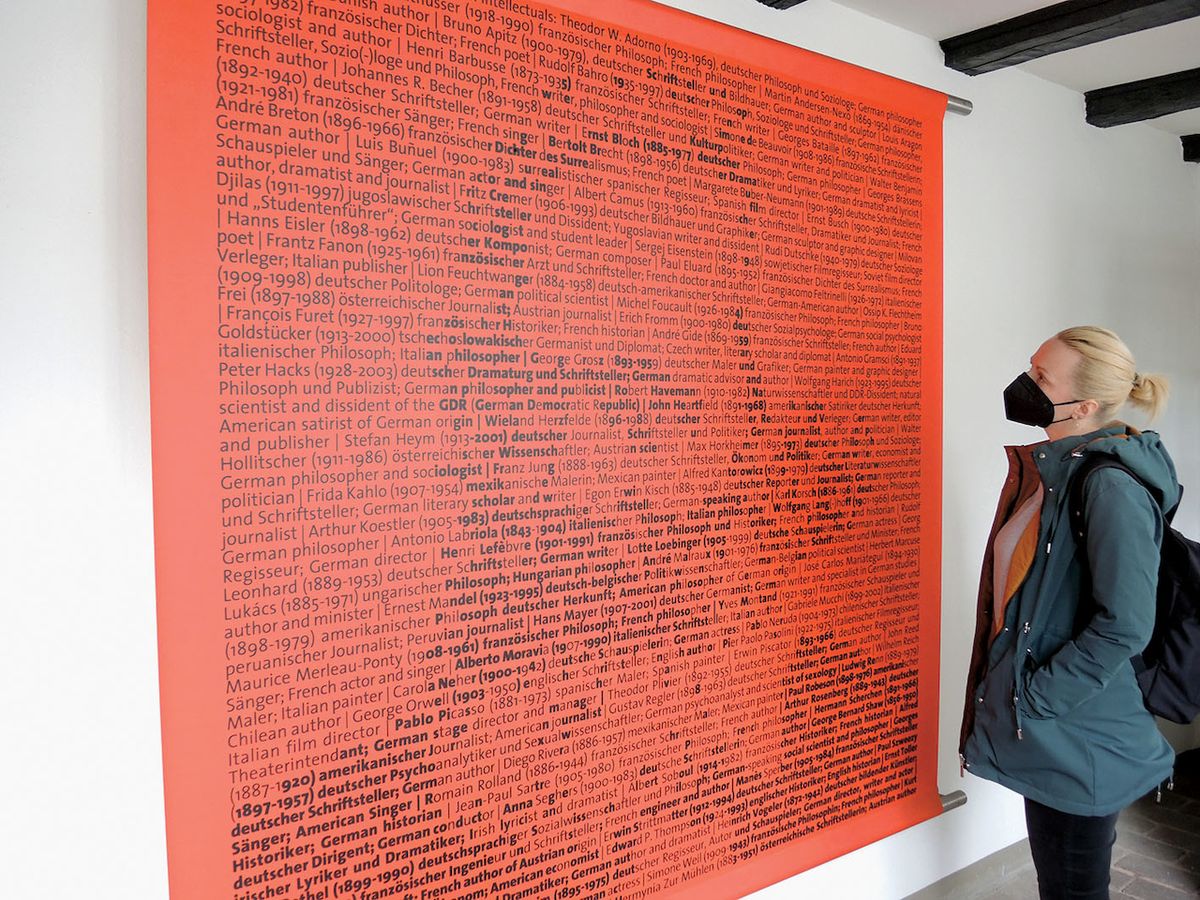 ntellectuals: Theodor W. Adorno (1903-1969), deutscher Philosoph und Soziologe; German philosopher
(1918-1990) französischer Philosoph; French philosopher | Martin Andersen-Nexö (1869-1954) dänischer
author | Bruno Apitz (1900-1979), deutscher Schriftsteller und Bildhauer; German author and sculptor | Louis Aragon
97-1982) französischer Dichter; French poet | Rudolf Bahro (1935-1997) deutscher Philosoph, Soziologe und Schriftsteller; German philosopher,
sociologist and author | Henri Barbusse (1873-1935) französischer Schriftsteller; French writer | Georges Bataille (1897-1962) französischer
Schriftsteller, Sozio(-)loge und Philosoph, French writer, philosopher and sociologist | Simone de Beauvoir (1908-1986) französische Schriftstellerin;
French author | Johannes R. Becher (1891-1958) deutscher Schriftsteller und Kulturpolitiker; German writer and politician | Walter Benjamin
(1892-1940) deutscher Schriftsteller, German writer | Ernst Bloch (1885-1977) deutscher Philosoph; German philosopher | Georges Brassens
(1921-1981) französischer Sänger; French singer | Bertolt Brecht (1898-1956) deutscher Dramatiker und Lyriker; German dramatist and lyricist |
André Breton (1896-1966) französischer Dichter des Surrealismus; French poet | Margarete Buber-Neumann (1901-1989) deutsche Schriftstellerin;
German author | Luis Buñuel (1900-1983) surrealistischer spanischer Regisseur; Spanish film director | Ernst Busch (1900-1980) deutscher
Schauspieler und Sänger; German actor and singer | Albert Camus (1913-1960) französischer Schriftsteller, Dramatiker und Journalist; French
author, dramatist and journalist | Fritz Cremer (1906-1993) deutscher Bildhauer und Graphiker; German sculptor and graphic designer | Milovan
Djilas (1911-1997) jugoslawischer Schriftsteller und Dissident; Yugoslavian writer and dissident | Rudi Dutschke (1940-1979) deutscher Soziologe
und „Studentenführer“; German sociologist and student leader | Sergej Eisenstein (1898-1948) sowjetischer Filmregisseur; Soviet film director
| Hanns Eisler (1898-1962) deutscher Komponist; German composer | Paul Eluard (1895-1952) französischer Dichter des Surrealismus; French
poet | Frantz Fanon (1925-1961) französischer Arzt und Schriftsteller; French doctor and author | Giangiacomo Feltrinelli (1926-1972) italienischer
Verleger; Italian publisher | Lion Feuchtwanger (1884-1958) deutsch-amerikanischer Schriftsteller; German-American author | Ossip K. Flechtheim
(1909-1998) deutscher Politologe; German political scientist | Michel Foucault (1926-1984) französischer Philosoph; French philosopher | Bruno
Frei (1897-1988) österreichischer Journalist; Austrian journalist | Erich Fromm (1900-1980) deutscher Sozialpsychologe; German social psychologist
| François Furet (1927-1997) französischer Historiker; French historian | André Gide (1869-1959) französischer Schriftsteller; French author | Eduard
Goldstücker (1913-2000) tschechoslowakischer Germanist und Diplomat; Czech writer, literary scholar and diplomat | Antonio Gramsci (1891-1937)
italienischer Philosoph; Italian philosopher | George Grosz (1893-1959) deutscher Maler und Grafiker; German painter and graphic designer
Peter Hacks (1928-2003) deutscher Dramaturg und Schriftsteller; German dramatic advisor and author | Wolfgang Harich (1923-1995) deutscher
Philosoph und Publizist; German philosopher and publicist | Robert Havemann (1910-1982) Naturwissenschaftler und DDR-Dissident; natural
scientist and dissident of the GDR (German Democratic Republic) | John Heartfield (1891-1968) amerikanischer Satiriker deutscher Herkunft;
American satirist of German origin | Wieland Herzfelde (1896-1988) deutscher Schriftsteller, Redakteur und Verleger; German writer, editor
and publisher | Stefan Heym (1913-2001) deutscher Journalist, Schriftsteller und Politiker; German journalist, author and politician | Walter
Hollitscher (1911-1986) österreichischer Wissenschaftler; Austrian scientist | Max Horkheimer (1895-1973) deutscher Philosoph und Soziologe;
German philosopher and sociologist | Franz Jung (1888-1963) deutscher Schriftsteller, Ökonom und Politiker; German writer, economist and
politician | Frida Kahlo (1907-1954) mexikanische Malerin; Mexican painter | Alfred Kantorowicz (1899-1979) deutscher Literaturwissenschaftler
und Schriftsteller; German literary scholar and writer | Egon Erwin Kisch (1885-1948) deutscher Reporter und Journalist; German reporter and
journalist | Arthur Koestler (1905-1983) deutschsprachiger Schriftsteller; German-speaking author | Karl Korsch (1886-1961) deutscher Philosoph;
German philosopher | Antonio Labriola (1843-1904) italienischer Philosoph; Italian philosopher | Wolfgang Lang(-)hoff (1901-1966) deutscher
Regisseur; German director | Henri Lefèbvre (1901-1991) französischer Philosoph und Historiker; French philosopher and historian | Rudolf
Leonhard (1889-1953) deutscher Schriftsteller; German writer | Lotte Loebinger (1905-1999) deutsche Schauspielerin; German actress | Georg
Lukács (1885-1971) ungarischer Philosoph; Hungarian philosopher | André Malraux (1901-1976) französischer Schriftsteller und Minister; French
author and minister | Ernest Mandel (1923-1995) deutsch-belgischer Politikwissenschaftler; German-Belgian political scientist | Herbert Marcuse
(1898-1979) amerikanischer Philosoph deutscher Herkunft; American philosopher of German origin | José Carlos Mariátegui (1894-1930)
peruanischer Journalist; Peruvian journalist | Hans Mayer (1907-2001) deutscher Germanist; German writer and specialist in German studies |
Maurice Merleau-Ponty (1908-1961) französischer Philosoph; French philosopher | Yves Montand (1921-1991) französischer Schauspieler und
Sänger; French actor and singer | Alberto Moravia (1907-1990) italienischer Schriftsteller; Italian author | Gabriele Mucchi (1899-2002) italienischer
Maler; Italian painter | Carola Neher (1900-1942) deutsche Schauspielerin; German actress | Pablo Neruda (1904-1973) chilenischer Schriftsteller;
Chilean author | George Orwell (1903-1950) englischer Schriftsteller; English author | Pier Paolo Pasolini (1922-1975) italienischer Filmregisseur;
Italian film director | Pablo Picasso (1881-1973) spanischer Maler; Spanish painter | Erwin Piscator (1893-1966) deutscher Regisseur und
Theaterintendant; German stage director and manager | Theodor Plivier (1892-1955) deutscher Schriftsteller; German author | John Reed
(1887-1920) amerikanischer Journalist; American journalist | Gustav Regler (1898-1963) deutscher Schriftsteller; German author | Wilhelm Reich
(1897-1957) deutscher Psychoanalytiker und Sexualwissenschaftler; German psychoanalyst and scientist of sexology | Ludwig Renn (1889-1979)
deutscher Schriftsteller; German author | Diego Rivera (1886-1957) mexikanischer Maler; Mexican painter | Paul Robeson (1898-1976) amerikanischer
Sänger; American Singer | Romain Rolland (1886-1944) französischer Schriftsteller; French author | Arthur Rosenberg (1889-1943) deutscher
Historiker; German historian | Jean-Paul Sartre (1905-1980) französischer Philosoph; French philosopher | Hermann Scherchen (1891-1966)
deutscher Dirigent; German conductor | Anna Seghers (1900-1983) deutsche Schriftstellerin; German author | George Bernard Shaw (1856-1950)
irischer Lyriker und Dramatiker; Irish lyricist and dramatist | Albert Soboul (1914-1982) französischer Historiker; French historian | Alfred
(1899-1990) deutschsprachiger Sozialwissenschaftler und Philosoph; German-speaking social scientist and philosopher | Georges
französischer Ingenieur und Schriftsteller; French engineer and author | Manès Sperber (1905-1984) französischer Schriftsteller
French author of Austrian origin | Erwin Strittmatter (1912-1994) deutscher Schriftsteller; German author | Paul Sweezy
American economist | Edward P. Thompson (1924-1993) englischer Historiker; English historian | Ernst Toller
Dramatiker; German author and dramatist | Heinrich Vogeler (1872-1942) deutscher bildender Künstler
(1895-1975) deutscher Regisseur, Autor und Schauspieler; German director, writer and actor
actress | Simone Weil (1909-1943) französische Philosophin; French philosopher | Kurt
Hermynia Zur Mühlen (1883-1951) österreichische Schriftstellerin; Austrian author